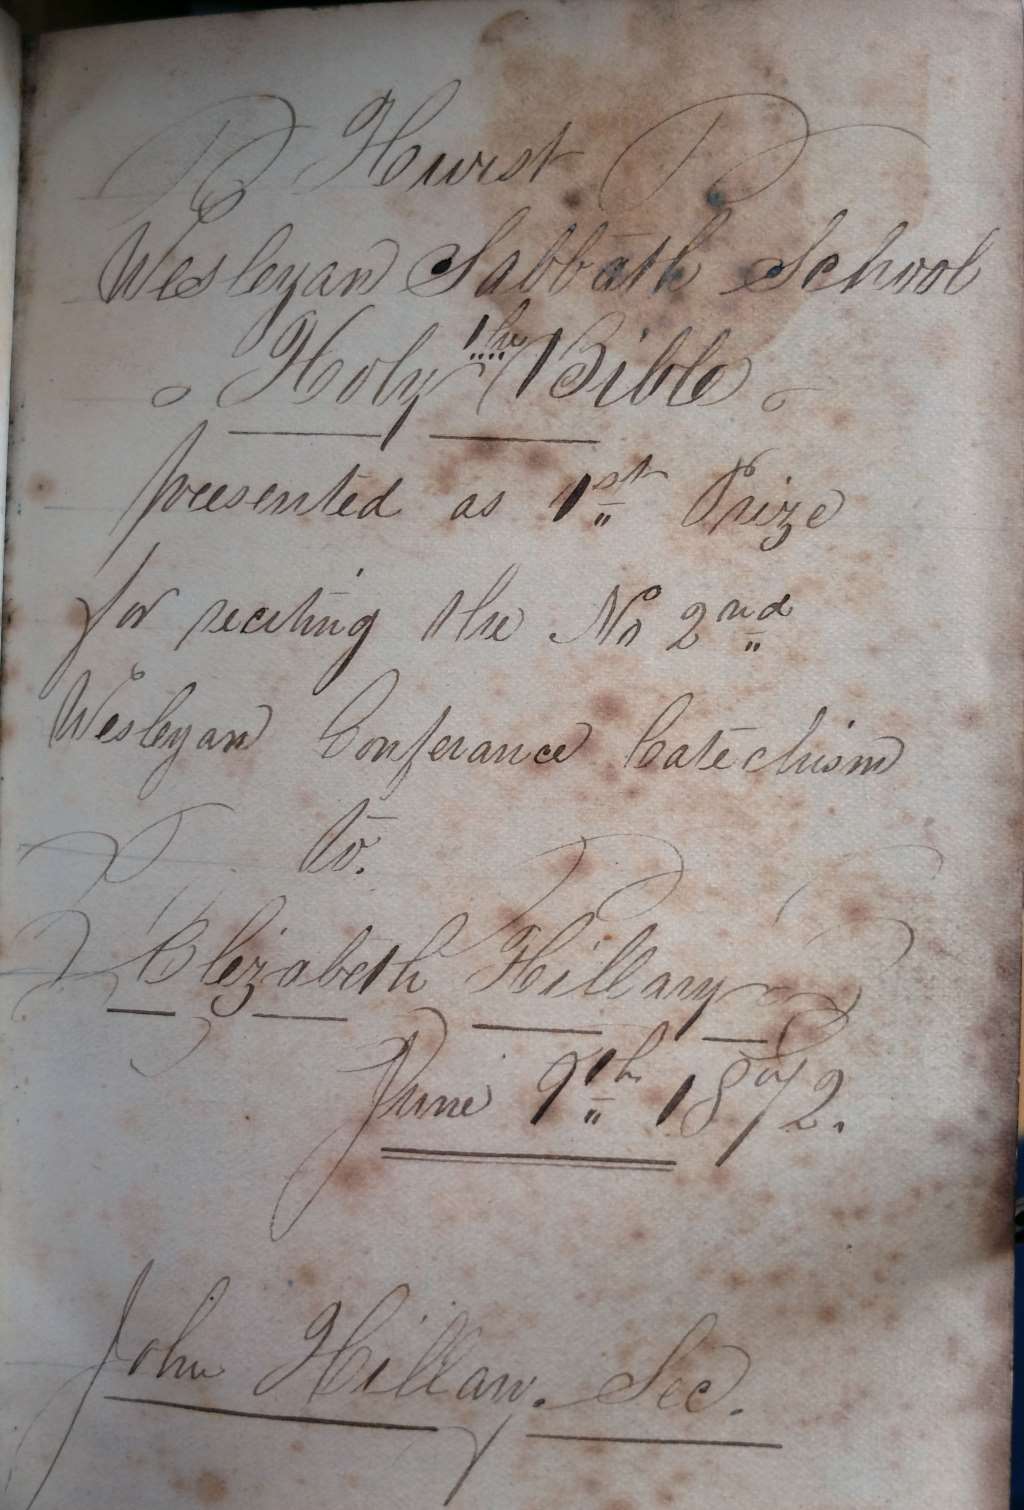 Hurst
Wesleyan Sabbath School
Holy the Bible
presented as 1st Prize
for reciting the No 2nd
Wesleyan Conferance Catechism
to.
Elizabeth Hillary
June 9th 1872.
John Hillary. Sec.